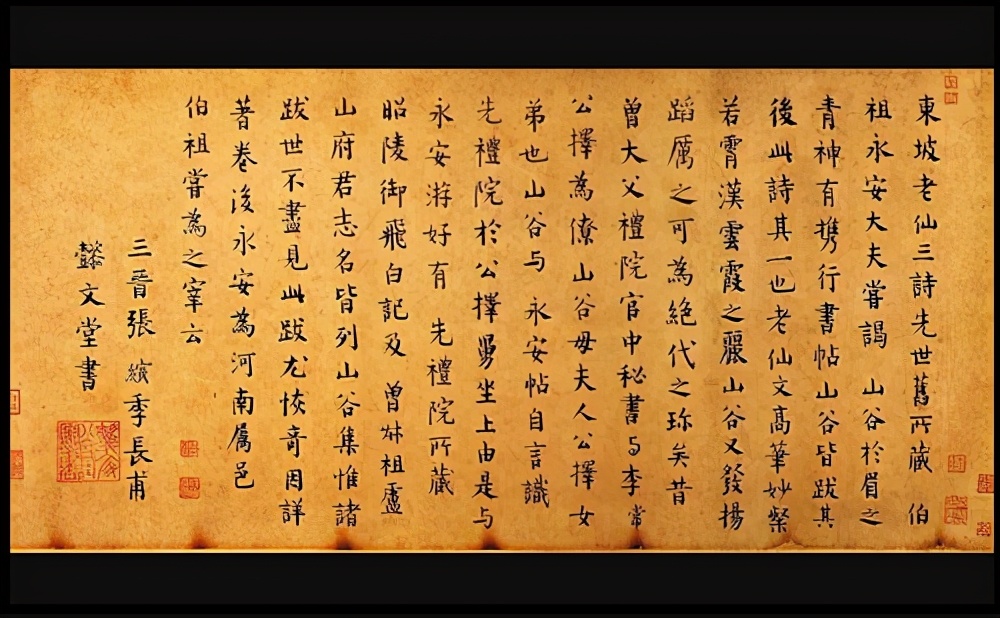 東坡老仙三詩先世舊所藏 伯
祖永安大夫嘗謁 山谷於眉之
青神有携行書帖山谷皆跋其
後此詩其一也老仙文高筆妙粲
若霄漢雲霞之麗山谷又發揚
蹈厲之可為絕代之珎矣昔
曾大父禮院官中秘書与李常
公擇為僚山谷母夫人公擇女
弟也山谷与 永安帖自言識
先禮院於公擇舅坐上由是与
永安游好有 先禮院所藏
昭陵御飛白記及 曾叔祖盧
山府君志名皆列山谷集惟諸
跋世不盡見此跋尤恢奇因詳
著卷後永安為河南屬邑
伯祖嘗為之宰云
三晉張縯季長甫
懿文堂書